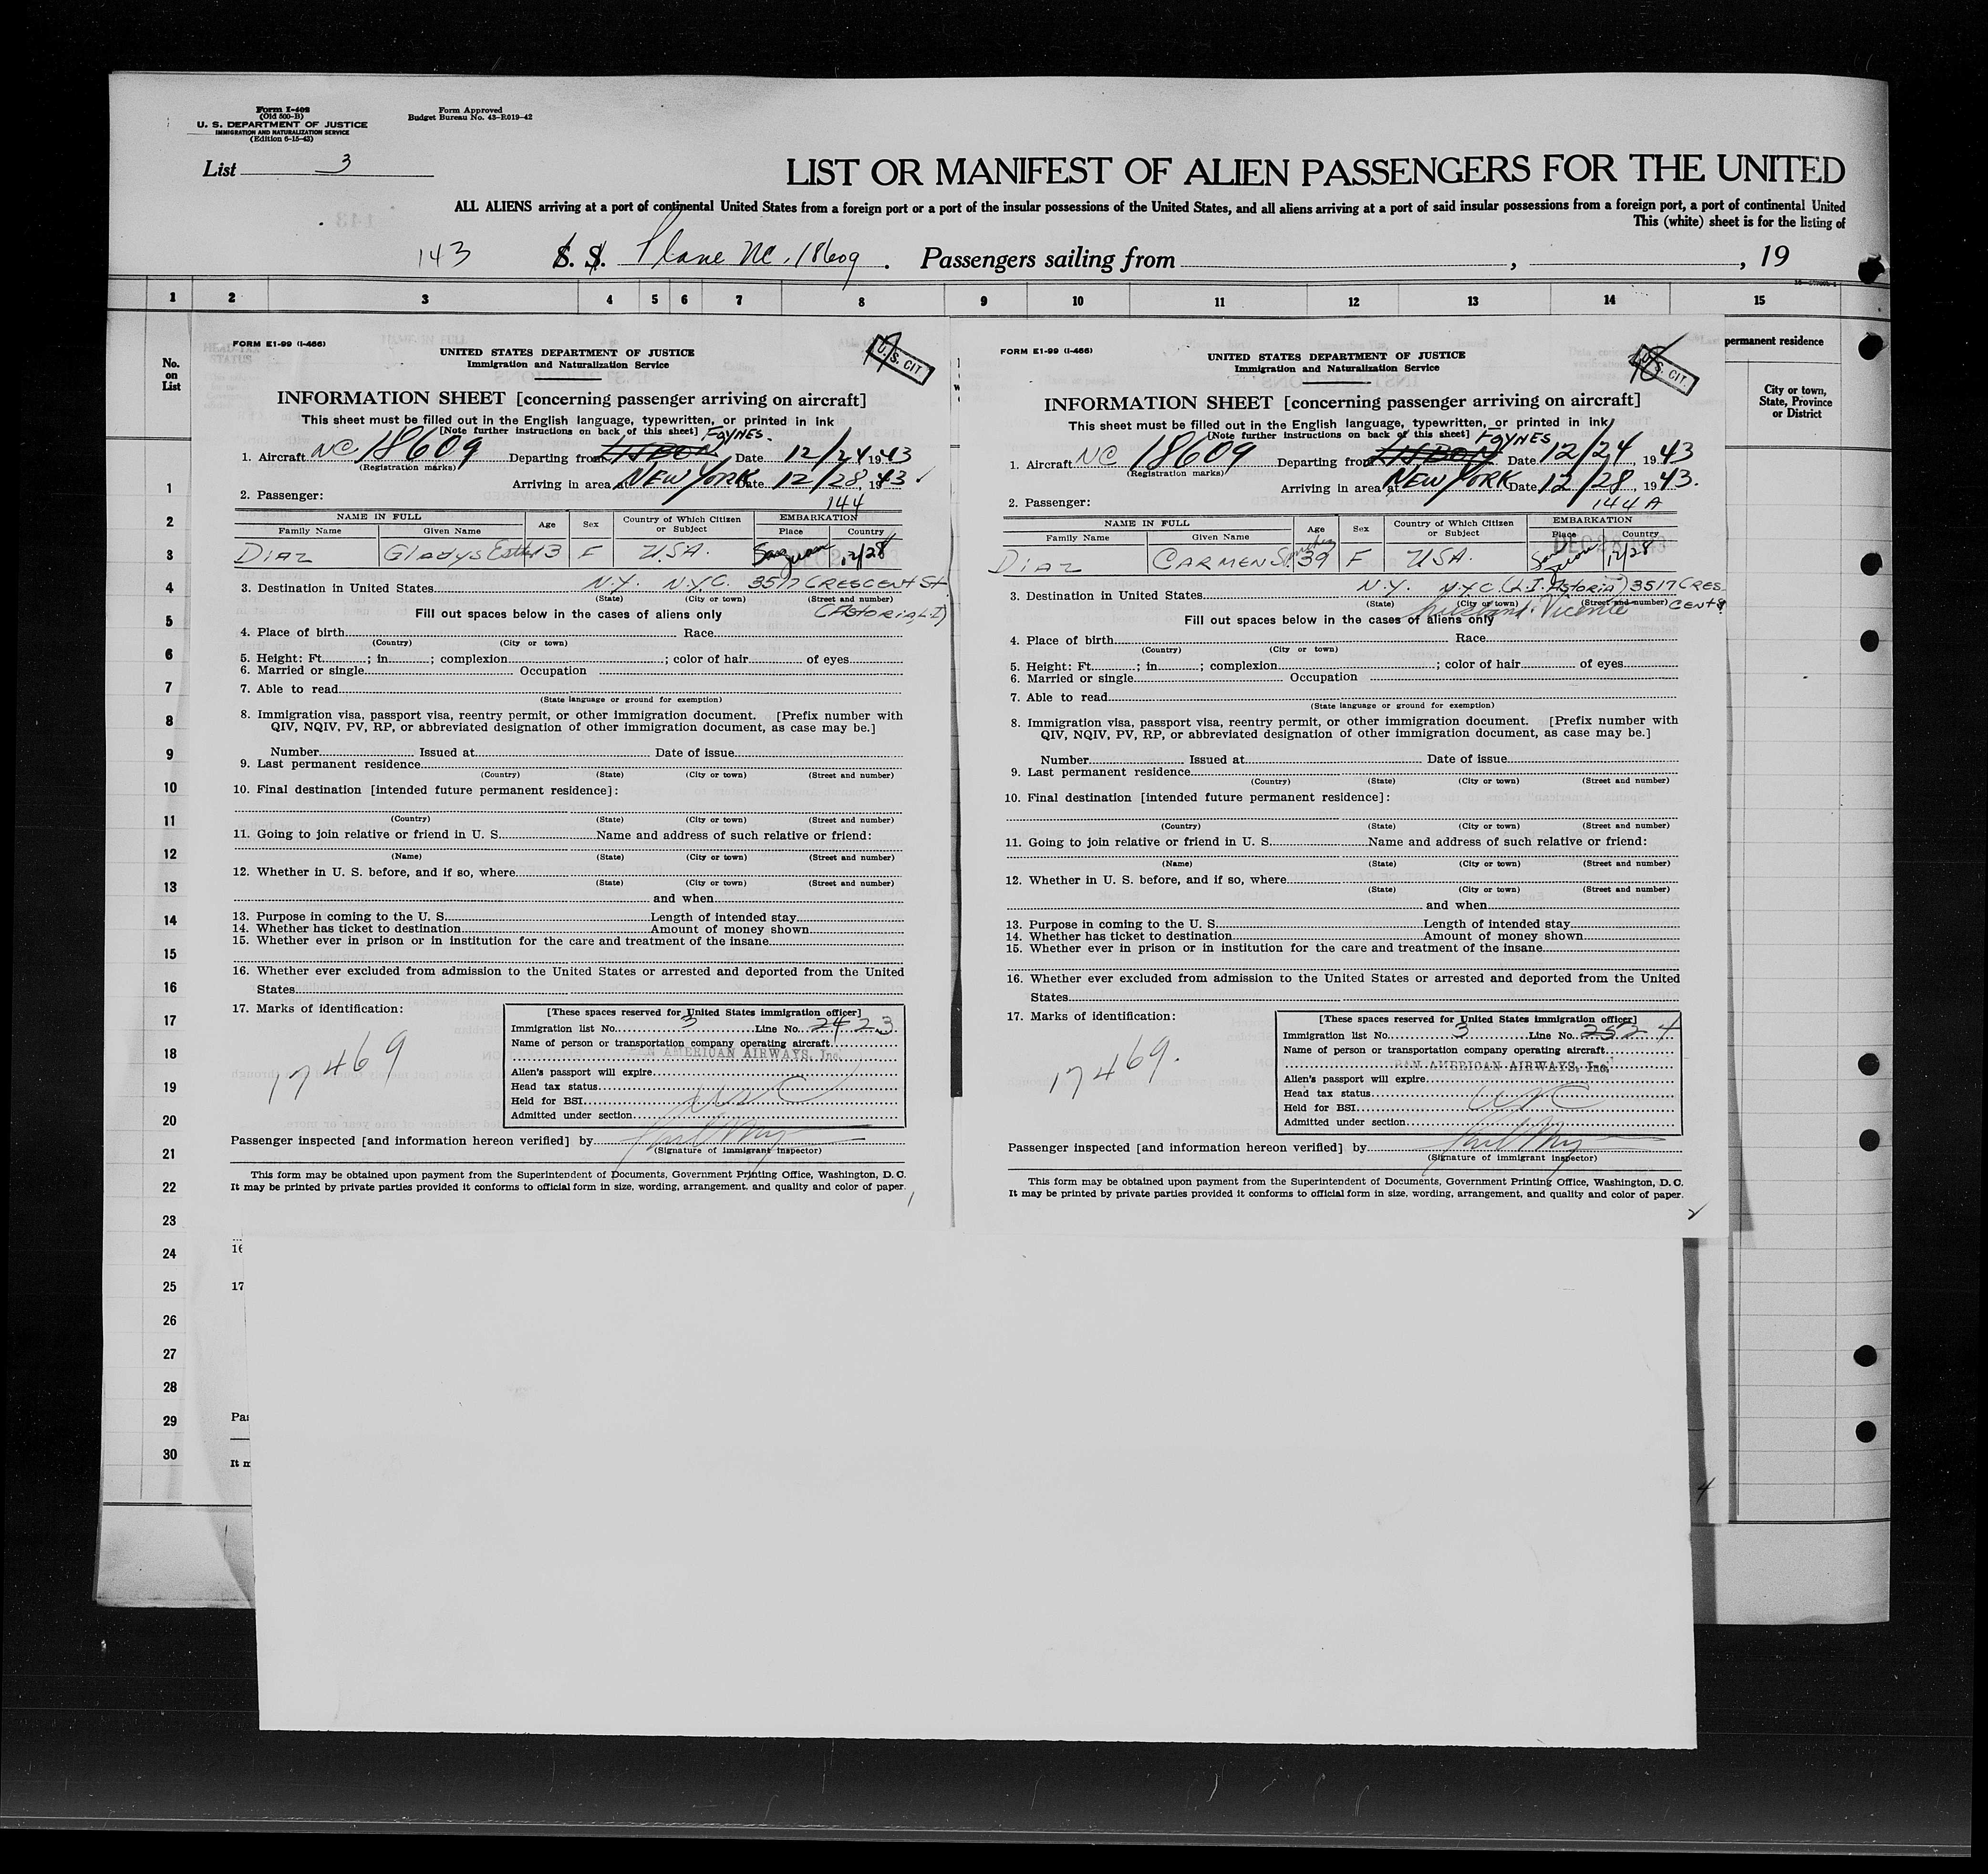 Form I-402
(Old 500-B)
U. S. DEPARTMENT OF JUSTICE
IMMIGRATION AND NATURALIZATION SERVICE
(Edition 6-15-43)
Form Approved
Budget Bureau No. 43-R019-42
List 3
LIST OR MANIFEST OF ALIEN PASSENGERS FOR THE UNITED
ALL ALIENS arriving at a port of continental United States from a foreign port or a port of the insular possessions of the United States, and all aliens arriving at a port of said insular possessions from a foreign port, a port of continental United
This (white) sheet is for the listing of
143 S. S. Plane NC. 18609. Passengers sailing from , , 19
1 2 3 4 5 6 7 8 9 10 11 12 13 14 15
No.
on
List
permanent residence
City or town,
State, Province
or District
1
2
3
4
5
6
7
8
9
10
11
12
13
14
15
16
17
18
19
20
21
22
23
24
25
26
27
28
29
30
FORM E1-99 (I-466)
UNITED STATES DEPARTMENT OF JUSTICE
Immigration and Naturalization Service
U.S. CIT.
INFORMATION SHEET [concerning passenger arriving on aircraft]
This sheet must be filled out in the English language, typewritten, or printed in ink
[Note further instructions on back of this sheet] FOYNES.
1. Aircraft NC 18609 Departing from LISBON Date 12/24 1943
(Registration marks)
Arriving in area at NEW YORK Date 12/28, 1943
2. Passenger: 144
NAME IN FULL Age Sex Country of Which Citizen or Subject EMBARKATION
Family Name Given Name Place Country
DIAZ GLADYS Esther 13 F U.S.A. San Juan 12/28
3. Destination in United States N.Y. N.Y.C. 3517 CRESCENT St
(State) (City or town) (Street and number)
Fill out spaces below in the cases of aliens only (ASTORIA, L.I)
4. Place of birth Race
(Country) (City or town)
5. Height: Ft. ; in. ; complexion ; color of hair of eyes
6. Married or single Occupation
7. Able to read
(State language or ground for exemption)
8. Immigration visa, passport visa, reentry permit, or other immigration document. [Prefix number with
QIV, NQIV, PV, RP, or abbreviated designation of other immigration document, as case may be.]
Number Issued at Date of issue
9. Last permanent residence
(Country) (State) (City or town) (Street and number)
10. Final destination [intended future permanent residence]:
(Country) (State) (City or town) (Street and number)
11. Going to join relative or friend in U. S. Name and address of such relative or friend:
(Name) (State) (City or town) (Street and number)
12. Whether in U. S. before, and if so, where
(State) (City or town) (Street and number)
and when
13. Purpose in coming to the U. S. Length of intended stay
14. Whether has ticket to destination Amount of money shown
15. Whether ever in prison or in institution for the care and treatment of the insane
16. Whether ever excluded from admission to the United States or arrested and deported from the United
States
17. Marks of identification:
17469
[These spaces reserved for United States immigration officer]
Immigration list No. 3 Line No. 24 23
Name of person or transportation company operating aircraft
PAN AMERICAN AIRWAYS, Inc.
Alien's passport will expire
Head tax status
Held for BSI USC
Admitted under section
Passenger inspected [and information hereon verified] by
(Signature of immigrant inspector)
This form may be obtained upon payment from the Superintendent of Documents, Government Printing Office, Washington, D. C.
It may be printed by private parties provided it conforms to official form in size, wording, arrangement, and quality and color of paper.
1
FORM E1-99 (I-466)
UNITED STATES DEPARTMENT OF JUSTICE
Immigration and Naturalization Service
U.S. CIT.
INFORMATION SHEET [concerning passenger arriving on aircraft]
This sheet must be filled out in the English language, typewritten, or printed in ink
[Note further instructions on back of this sheet] FOYNES
1. Aircraft NC 18609 Departing from LISBON Date 12/24, 1943
(Registration marks)
Arriving in area at NEW YORK Date 12/28, 1943.
2. Passenger: 144 A
NAME IN FULL Age Sex Country of Which Citizen or Subject EMBARKATION
Family Name Given Name Place Country
DIAZ CARMEN Sanchez 39 F USA. San Juan 12/28
3. Destination in United States N.Y. N.Y.C (L.I. ASTORIA) 3517 CRES
(State) (City or town) (Street and number) CENT St
husband: Vicente
Fill out spaces below in the cases of aliens only
4. Place of birth Race
(Country) (City or town)
5. Height: Ft. ; in. ; complexion ; color of hair of eyes
6. Married or single Occupation
7. Able to read
(State language or ground for exemption)
8. Immigration visa, passport visa, reentry permit, or other immigration document. [Prefix number with
QIV, NQIV, PV, RP, or abbreviated designation of other immigration document, as case may be.]
Number Issued at Date of issue
9. Last permanent residence
(Country) (State) (City or town) (Street and number)
10. Final destination [intended future permanent residence]:
(Country) (State) (City or town) (Street and number)
11. Going to join relative or friend in U. S. Name and address of such relative or friend:
(Name) (State) (City or town) (Street and number)
12. Whether in U. S. before, and if so, where
(State) (City or town) (Street and number)
and when
13. Purpose in coming to the U. S. Length of intended stay
14. Whether has ticket to destination Amount of money shown
15. Whether ever in prison or in institution for the care and treatment of the insane
16. Whether ever excluded from admission to the United States or arrested and deported from the United
States
17. Marks of identification:
17469.
[These spaces reserved for United States immigration officer]
Immigration list No. 3 Line No. 25 24
Name of person or transportation company operating aircraft
PAN AMERICAN AIRWAYS, Inc.
Alien's passport will expire
Head tax status
Held for BSI USC
Admitted under section
Passenger inspected [and information hereon verified] by
(Signature of immigrant inspector)
This form may be obtained upon payment from the Superintendent of Documents, Government Printing Office, Washington, D. C.
It may be printed by private parties provided it conforms to official form in size, wording, arrangement, and quality and color of paper.
2
16
17
Pas
It m
4